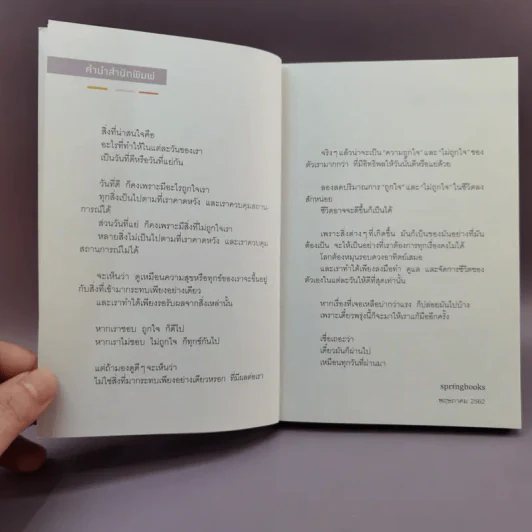 คำนำสำนักพิมพ์
สิ่งที่น่าสนใจคือ
อะไรที่ทำให้ในแต่ละวันของเรา
เป็นวันที่ดีหรือวันที่แย่กัน
วันที่ดี ก็คงเพราะมีอะไรถูกใจเรา
ทุกสิ่งเป็นไปตามที่เราคาดหวัง และเราควบคุมสถาน-
การณ์ได้
ส่วนวันที่แย่ ก็คงเพราะมีสิ่งที่ไม่ถูกใจเรา
หลายสิ่งไม่เป็นไปตามที่เราคาดหวัง และเราควบคุม
สถานการณ์ไม่ได้
จะเห็นว่า ดูเหมือนความสุขหรือทุกข์ของเราจะขึ้นอยู่
กับสิ่งที่เข้ามากระทบเพียงอย่างเดียว
และเราทำได้เพียงรอรับผลจากสิ่งเหล่านั้น
หากเราชอบ ถูกใจ ก็ดีไป
หากเราไม่ชอบ ไม่ถูกใจ ก็ทุกข์กันไป
แต่ถ้ามองดูดีๆ จะเห็นว่า
ไม่ใช่สิ่งที่มากระทบเพียงอย่างเดียวหรอก ที่มีผลต่อเรา
จริงๆ แล้วน่าจะเป็น "ความถูกใจ" และ "ไม่ถูกใจ" ของ
ตัวเรามากกว่า ที่มีอิทธิพลให้วันนั้นดีหรือแย่ด้วย
ลองลดปริมาณการ "ถูกใจ" และ "ไม่ถูกใจ" ในชีวิตลง
สักหน่อย
ชีวิตอาจจะดีขึ้นก็เป็นได้
เพราะสิ่งต่างๆ ที่เกิดขึ้น มันก็เป็นของมันอย่างที่มัน
ต้องเป็น จะให้เป็นอย่างที่เราต้องการทุกเรื่องคงไม่ได้
โลกต้องหมุนรอบดวงอาทิตย์เสมอ
และเราทำได้เพียงลงมือทำ ดูแล และจัดการชีวิตของ
ตัวเองในแต่ละวันให้ดีที่สุดเท่านั้น
หากเรื่องที่เจอเหลือบากว่าแรง ก็ปล่อยมันไปบ้าง
เพราะเดี๋ยวพรุ่งนี้ก็จะมาให้เราแก้มืออีกครั้ง
เชื่อเถอะว่า
เดี๋ยวมันก็ผ่านไป
เหมือนทุกวันที่ผ่านมา
springbooks
พฤษภาคม 2562